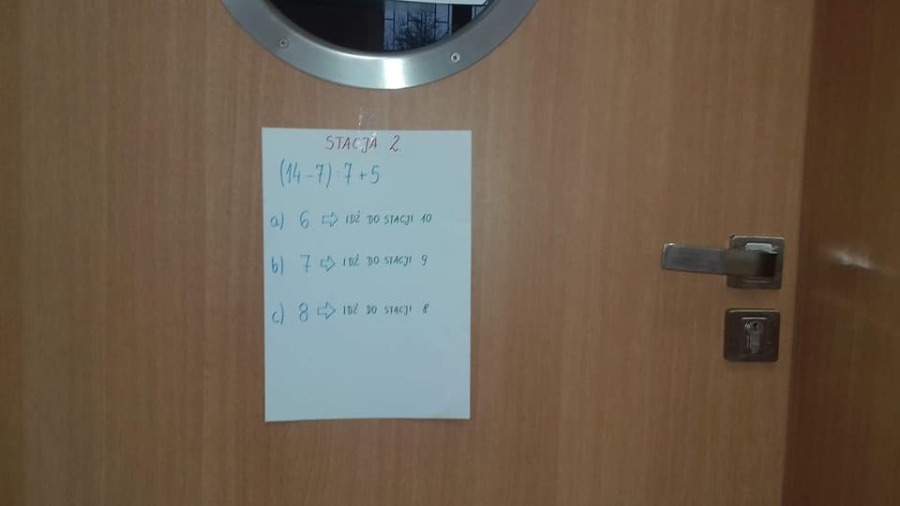 STACJA 2
(14-7):7+5
a) 6 ⇨ IDŹ DO STACJI 10
b) 7 ⇨ IDŹ DO STACJI 9
c) 8 ⇨ IDŹ DO STACJI 8